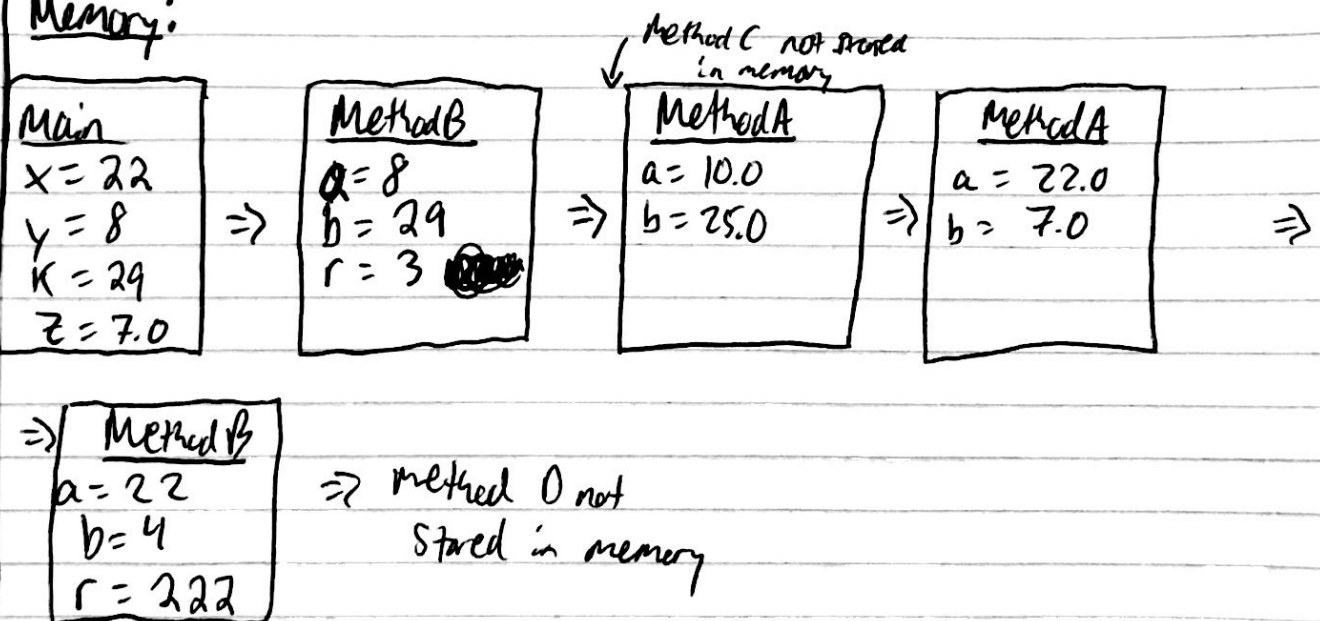 Memory:
Method C not stored
in memory
Main
x = 22
y = 8
K = 29
Z = 7.0
⇒
MethodB
a = 8
b = 29
r = 3
⇒
MethodA
a = 10.0
b = 25.0
⇒
MethodA
a = 22.0
b = 7.0
⇒
⇒
Method B
a = 22
b = 4
r = 222
⇒ method D not
Stored in memory